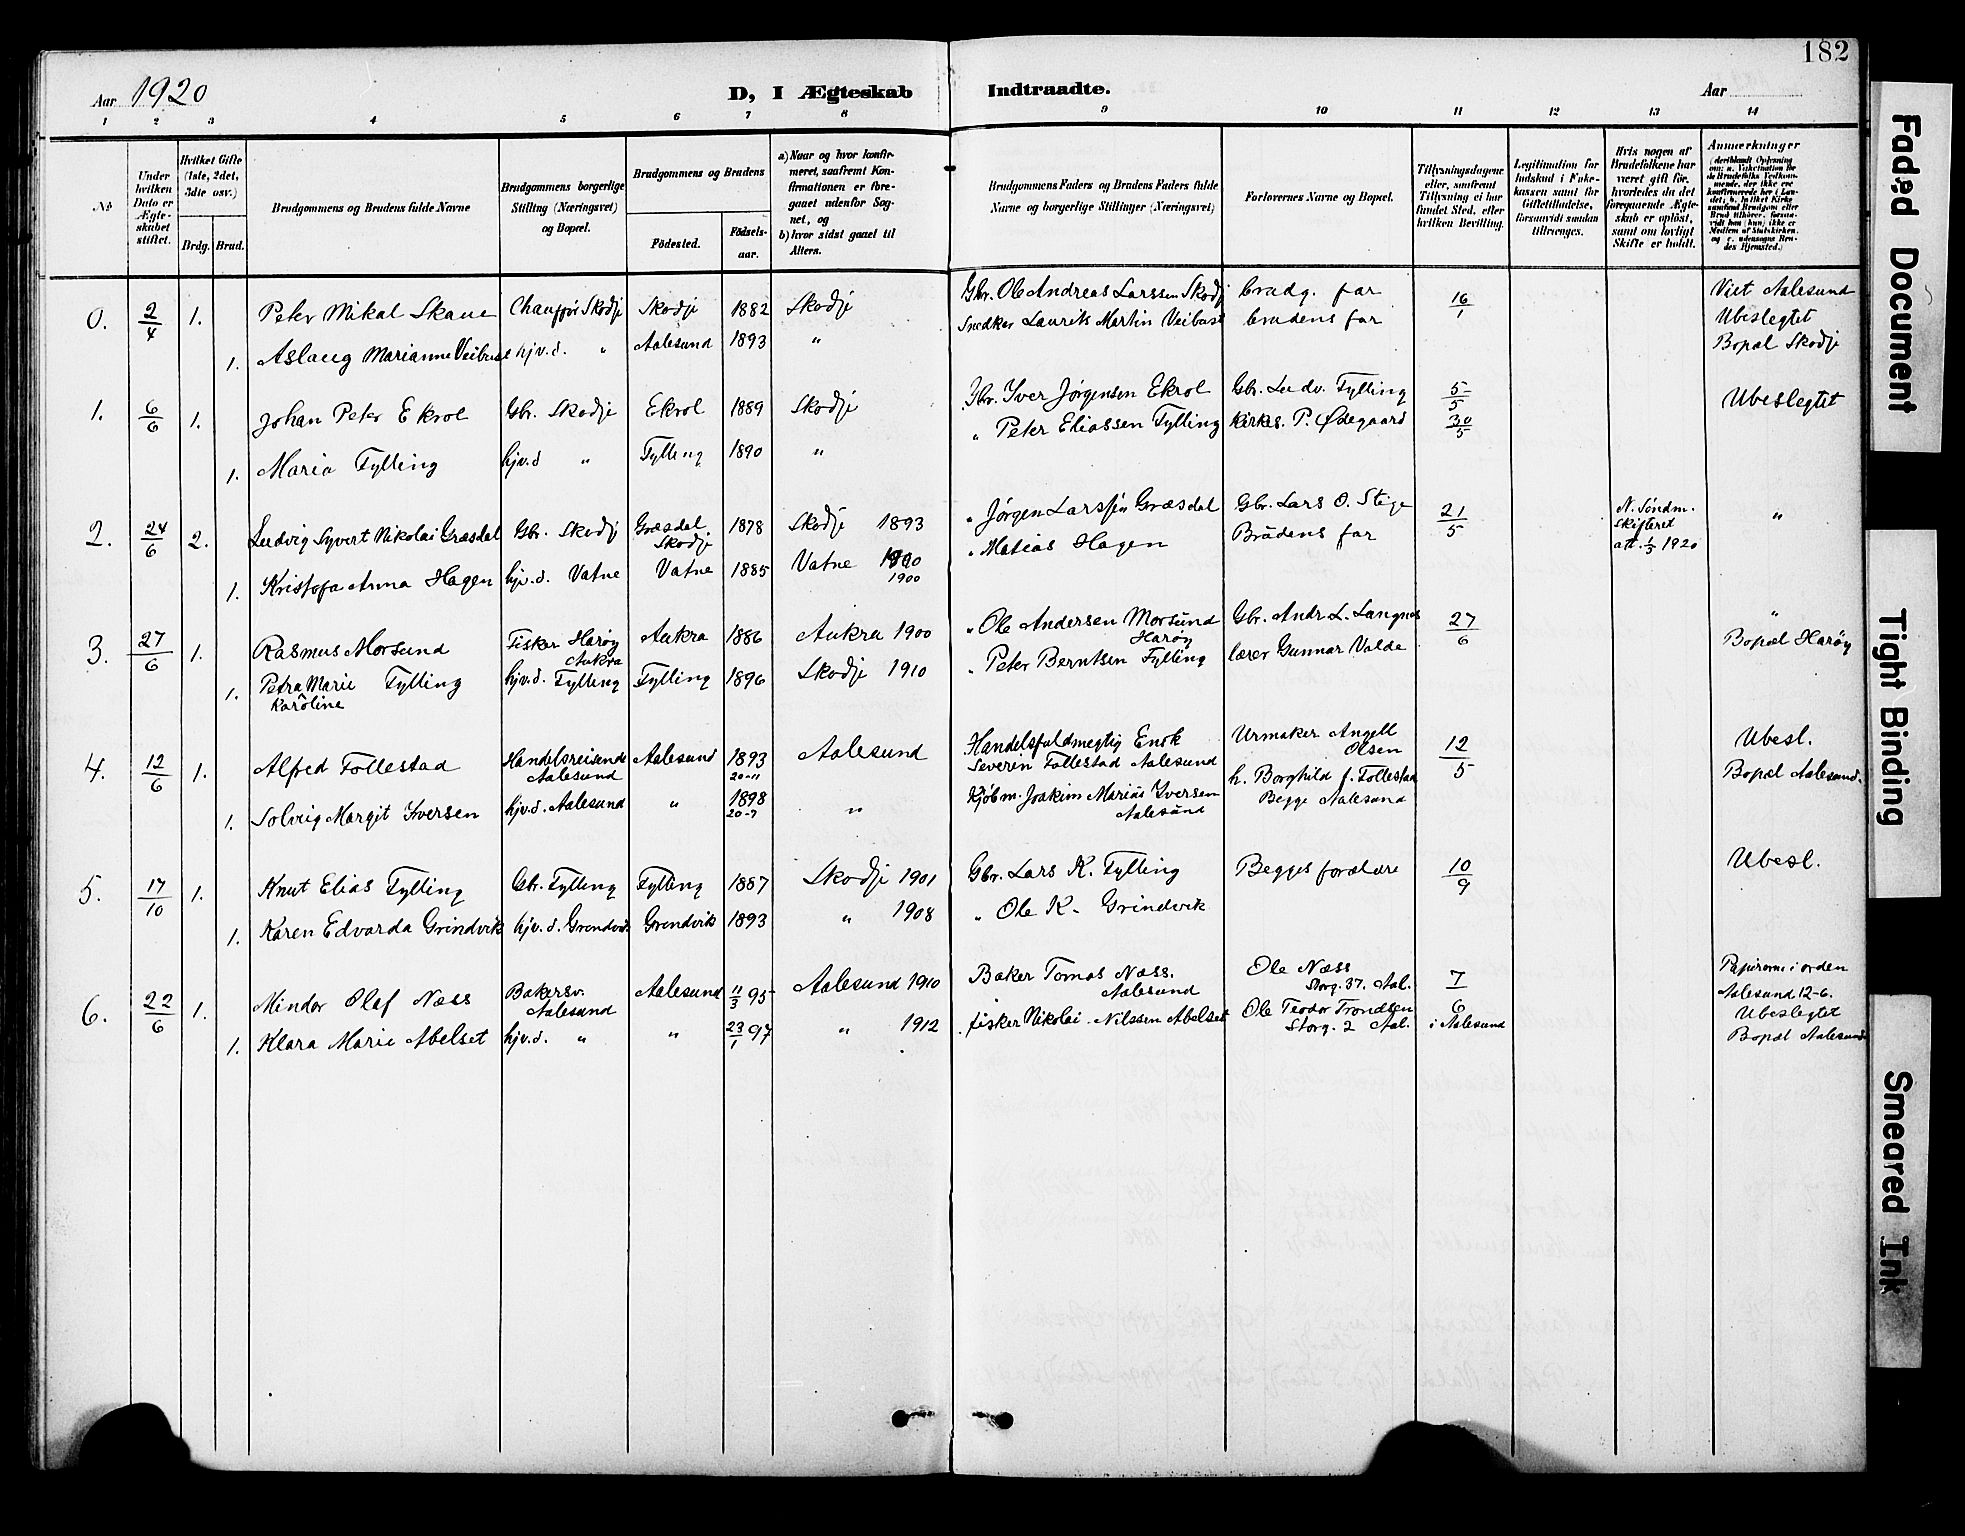 182
Aar 1920
D, I Ægteskab Indtraadte.
Aar
1 2 3 4 5 6 7 8 9 10 11 12 13 14
No
Under hvilken Dato er Ægteskabet stiftet.
Hvilket Gifte (1ste, 2det, 3die osv.)
Brdg. Brud.
Brudgommens og Brudens fulde Navne
Brudgommens borgerlige Stilling (Næringsvei) og Bopæl.
Brudgommens og Brudens
Fødested.
Fødselsaar.
a) Naar og hvor konfirmeret, saafremt Konfirmationen er foregaaet udenfor Sognet, og
b) hvor sidst gaaet til Alters.
Brudgommens Faders og Brudens Faders fulde Navne og borgerlige Stillinger (Næringsvei)
Forlovernes Navne og Bopæl.
Tillysningsdagene eller, saafremt Tillysning ei har fundet Sted, efter hvilken Bevilling.
Legitimation for Indskud i Enkekassen samt for Giftetilladelse, forsaavidt saadan tiltrænges.
Hvis nogen af Brudefolkene har været gift før, hvorledes da det foregaaende Ægteskab er opløst, samt om lovligt Skifte er holdt.
Anmærkninger
0. 2/4 1. Peter Mikal Skaue Chauffør Skodje Skodje 1882 Skodje Gbr. Ole Andreas Larssen Skodj brudg. far 16/1 Viet Aalesund
Snedker Laurits Martin Veibust brudens far Ubeslegtet
1. Aslaug Marianne Veibust hjv.d. " Aalesund 1893 " Bopæl Skodje
1. 6/6 1. Johan Peter Ekrol Gbr. Skodje Ekrol 1889 Skodje Gbr. Iver Jørgensen Ekrol Gbr. Ludv. Fylling 5/5 Ubeslegtet
" Peter Eliassen Fylling Kirkes. P. Ødegaard 30/5
1. Maria Fylling hjv.d " Fylling 1890 "
2. 24/6 2. Ludvig Syvert Nikolai Græsdal Gbr. Skodj Græsdal Skodje 1878 Skodje 1893 " Jørgen Larssen Græsdal Gbr. Lars O. Stige 21/5 N. Søndm. Skifteret att. 1/3 1920 "
" Matias Hagen Brudens far
1. Kristofa Anna Hagen hjv.d. Vatne Vatne 1885 Vatne 1900
1900
3. 27/6 1. Rasmus Morsund Fisker Harøy Aukra Aukra 1886 Aukra 1900 " Ole Andersen Morsund Harøy Gbr. Andr. L. Langnes 27/6 "
Bopæl Harøy
1. Petra Marie Karoline Fylling hjv.d. Fylling Fylling 1896 Skodje 1910 " Peter Berntsen Fylling lærer Gunnar Valde
4. 12/6 1. Alfred Follestad Handelsreisende Aalesund Aalesund 1893 20-11 Aalesund Handelsfuldmegtig Enok Severen Follestad Aalesund Urmaker Angell Olsen 12/5 Ubesl.
Bopæl Aalesund.
1. Solveig Margit Iversen hjv.d. Aalesund " 1898 20-7 " Kjøbm. Joakim Marius Iversen Aalesund h. Borghild f. Follestad Begge Aalesund
5. 17/10 1. Knut Elias Fylling Gbr. Fylling Fylling 1887 Skodje 1901 Gbr. Lars K. Fylling Begges forældre 10/9 Ubesl.
1. Karen Edvarda Grindvik hjv.d. Grendvik Grendvik 1893 " 1908 " Ole K. Grindvik
6. 22/6 1. Mindor Olaf Næss Bakersv. Aalesund Aalesund 11/3 95 Aalesund 1910 Baker Tomas Næss. Aalesund Ole Næss Storg. 37. Aal. 7/6 i Aalesund Papirerne i orden Aalesund 12-6.
Ubeslegtet
1. Klara Marie Abelset hjv.d. " " 23/1 97 " 1912 fisker Nikolai Nilssen Abelset Ole Teodor Trondsen Storg. 2 Aal. Bopæl Aalesund
Faded Document
Tight Binding
Smeared Ink